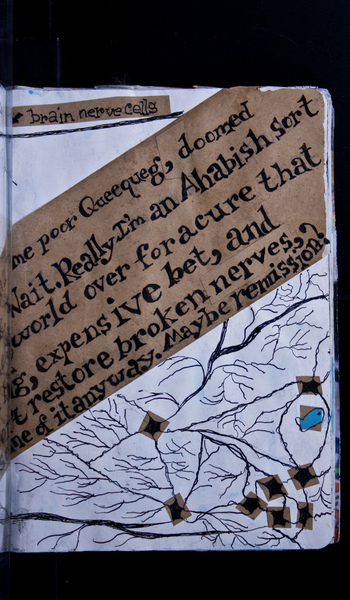 brain nerve cells
me poor Queequeg, doomed
Wait. Really I'm an Ahabish sort
world over for a cure that
g, expensive bet, and
t restore broken nerves,
ne of it anyway. Maybe remission?